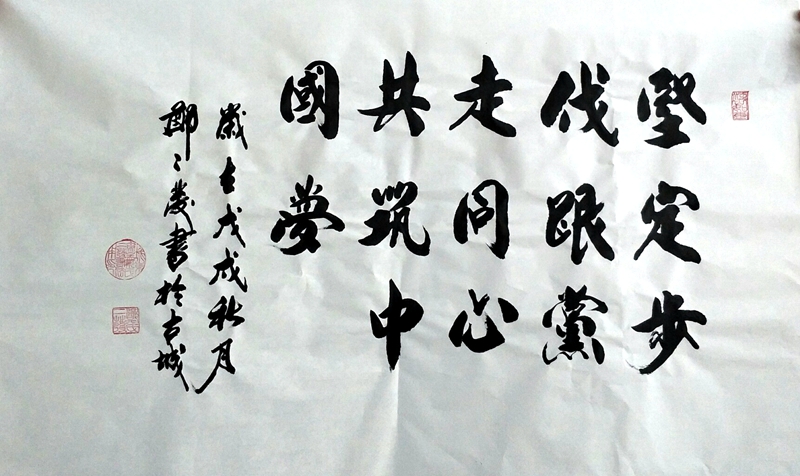 堅定步
伐跟黨
走同心
共筑中
國夢
歲在戊戌秋月
鄭書於古城